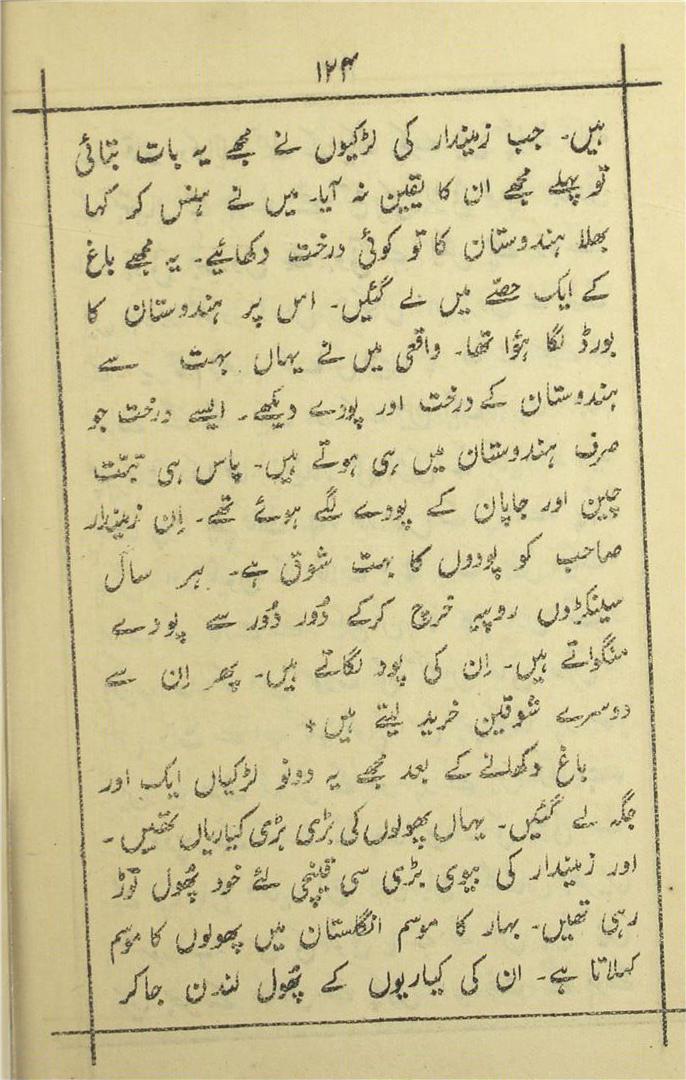 ۱۲۴
ہیں۔ جب زمیندار کی لڑکیوں نے مجھے یہ بات بتائی
تو پہلے مجھے ان کا یقین نہ آیا۔ میں نے ہنس کر کہا
بھلا ہندوستان کا تو کوئی درخت دکھائیے۔ یہ مجھے باغ
کے ایک حصّے میں لے گئیں۔ اس پر ہندوستان کا
بورڈ لگا ہؤا تھا۔ واقعی میں نے یہاں بہت سے
ہندوستان کے درخت اور پودے دیکھے۔ ایسے درخت جو
صرف ہندوستان میں ہی ہوتے ہیں۔ پاس ہی تبّت
چین اور جاپان کے پودے لگے ہوئے تھے۔ اِن زمیندار
صاحب کو پودوں کا بہت شوق ہے۔ ہر سال
سینکڑوں روپیہ خرچ کرکے دُور دُور سے پودے
منگواتے ہیں۔ اِن کی پود لگاتے ہیں۔ پھر اِن سے
دوسرے شوقین خرید لیتے ہیں٭
باغ دکھلانے کے بعد مجھے یہ دونو لڑکیاں ایک اور
جگہ لے گئیں۔ یہاں پھولوں کی بڑی بڑی کیاریاں تھیں۔
اور زمیندار کی بیوی بڑی سی قینچی لئے خود پھُول توڑ
رہی تھیں۔ بہار کا موسم انگلستان میں پھولوں کا موسم
کہلاتا ہے۔ ان کی کیاریوں کے پھُول لندن جاکر